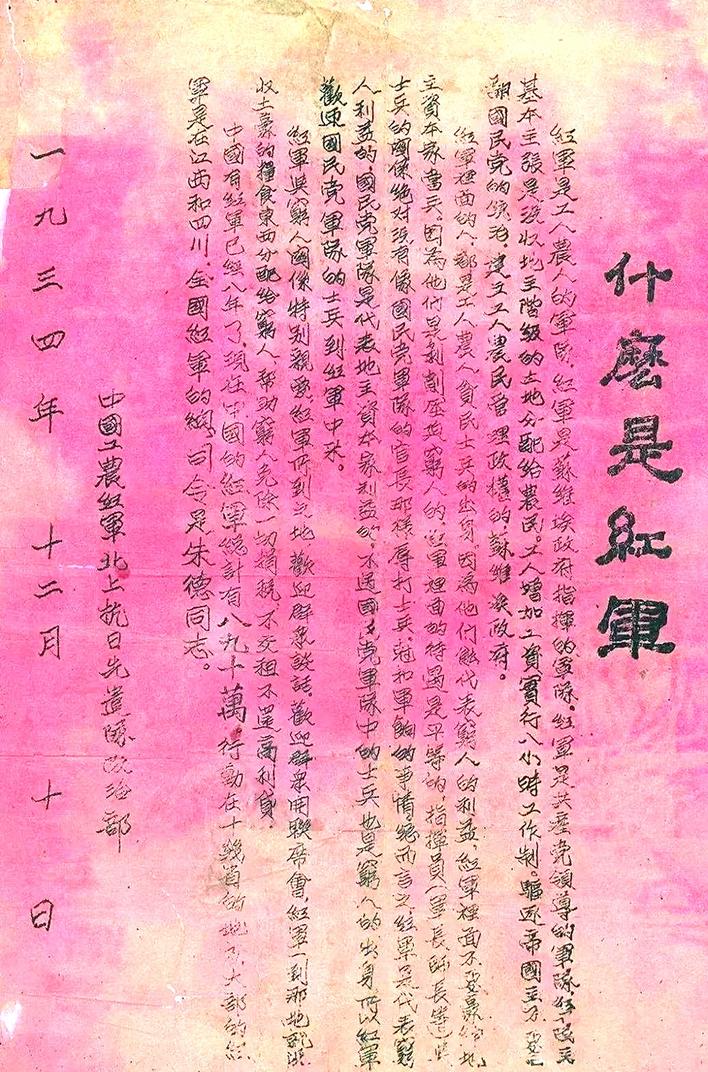 什麽是紅軍
紅軍是工人農人的軍隊，紅軍是蘇維埃政府指揮的軍隊。紅軍是共產党領導的軍隊，紅軍的
基本主張是沒收地主階級的土地分配給農民。工人增加工資實行八小時工作制。驅逐帝國主力
翻國民党的統治，建立工人農民管理政權的，蘇維埃政府。
紅軍裡面的人，都是工人農人貧民士兵的出身，因為他们能代表窮人的利益，紅軍裡面不要暴
主資本家當兵，因為他们是剥削压廹窮人的，紅軍裡面的待遇是平等的，指揮員（軍長師長
士兵的關係絕对沒有像國民党軍隊的官長那樣，辱打士兵，尅扣軍餉的事情，總而言之，紅軍是代表窮
人利益的，國民党軍隊是代表地主資本家利益的，不過國民党軍隊中的士兵也是窮人的出身，所以紅軍
歡迎國民党軍隊的士兵到紅軍中來。
紅軍與窮人關係特别親愛，紅軍所到之地，歡迎群衆談話，歡迎群衆開聯席會，紅軍一到那地就沒
收土豪的糧食東西分配給窮人，帮助窮人免除一切捐稅，不交租不還高利貸。
中國有紅軍已經八年了，現在中國的紅軍總計有八九十萬，行動在十幾省的地方，大部的紅
軍是在江西和四川，全國紅軍的總司令是朱德同志。
中國工農紅軍北上抗日先遣隊政治部
一九三四年十二月十日